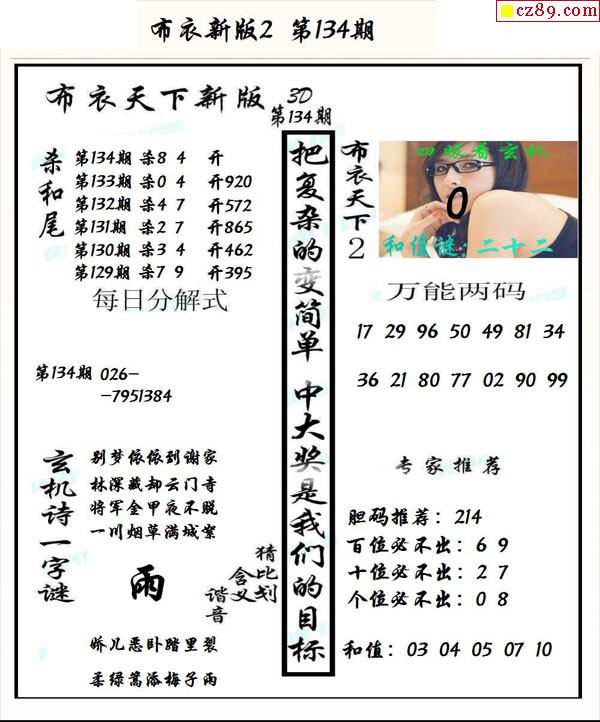 cz89.com
布衣新版2 第134期
布衣天下新版 3D
第134期
杀和尾
第134期 柒8 4 开
第133期 柒0 4 开920
第132期 柒4 7 开572
第131期 柒2 7 开865
第130期 柒3 4 开462
第129期 柒7 9 开395
每日分解式
第134期 026-
-7951384
玄机诗一字谜
别梦依依到谢家
林深藏却云门寺
将军金甲夜不脱
一川烟草满城絮
雨
猜比划
含义
谐音
娇儿恶卧踏里裂
柔绿篙添梅子雨
把复杂的变简单 中大奖是我们的目标
布衣天下2
四眼看玄机
0
和值谜:二十二
万能两码
17 29 96 50 49 81 34
36 21 80 77 02 90 99
专家推荐
胆码推荐：214
百位必不出：6 9
十位必不出：2 7
个位必不出：0 8
和值：03 04 05 07 10